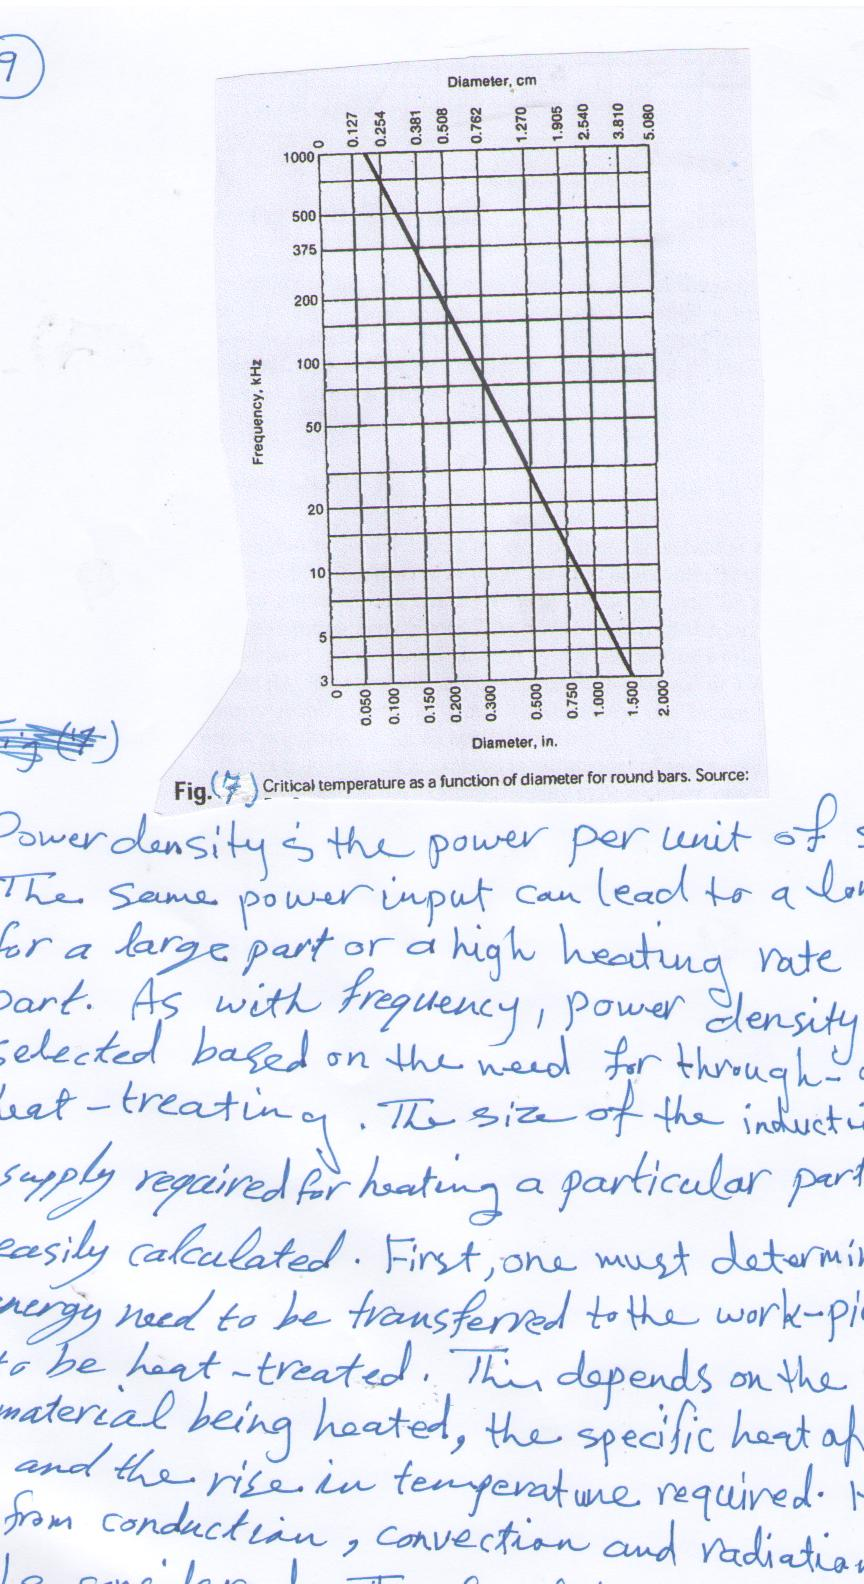 9
Diameter, cm
0 0.127 0.254 0.381 0.508 0.762 1.270 1.905 2.540 3.810 5.080
1000
500
375
200
100
50
20
10
5
3
Frequency, kHz
0 0.050 0.100 0.150 0.200 0.300 0.500 0.750 1.000 1.500 2.000
Diameter, in.
Fig. (7) Critical temperature as a function of diameter for round bars. Source:
Power density is the power per unit of s
The same power input can lead to a lo
for a large part or a high heating rate
part. As with frequency, power density
selected based on the need for through-
heat-treating. The size of the inducti
supply required for heating a particular part
easily calculated. First, one must determin
energy need to be transferred to the work-pie
to be heat-treated. This depends on the
material being heated, the specific heat of
and the rise in temperature required. H
from conduction, convection and radiation